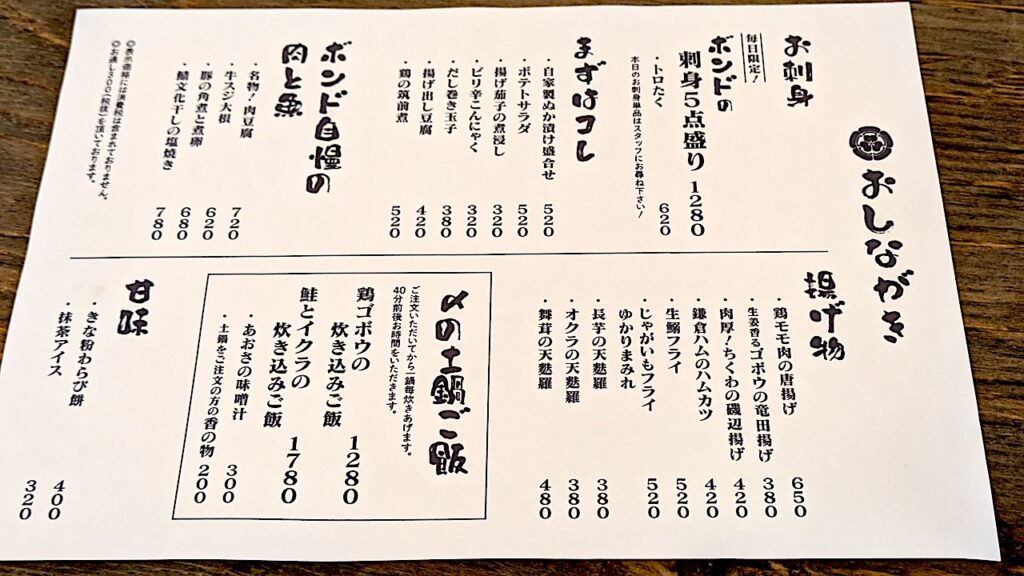 おしながき
お刺身
毎日限定!
ボンドの
刺身5点盛り 1280
・トロたく 620
本日のお刺身単品はスタッフにお尋ね下さい!
まずはコレ
・自家製ぬか漬け盛合せ 520
・ポテトサラダ 520
・揚げ茄子の煮浸し 320
・ピリ辛こんにゃく 320
・だし巻き玉子 380
・揚げ出し豆腐 420
・鶏の筑前煮 520
ボンド自慢の
肉と魚
・名物!肉豆腐 720
・牛スジ大根 620
・豚の角煮と煮卵 680
・鯖文化干しの塩焼き 780
◎表示価格には消費税は含まれておりません。
◎お通し300(税抜)を頂いております。
揚げ物
・鶏モモ肉の唐揚げ 650
・生姜香るゴボウの竜田揚げ 380
・肉厚!ちくわの磯辺揚げ 420
・鎌倉ハムのハムカツ 420
・生鰯フライ 520
・じゃがいもフライ
ゆかりまみれ 520
・長芋の天麩羅 380
・オクラの天麩羅 380
・舞茸の天麩羅 480
〆の土鍋ご飯
ご注文いただいてから一鍋毎炊きあげます。
40分前後お時間をいただきます。
鶏ゴボウの
炊き込みご飯 1280
鮭とイクラの
炊き込みご飯 1780
・あおさの味噌汁 300
・土鍋をご注文の方の香の物 200
甘味
・きな粉わらび餅 400
・抹茶アイス 320